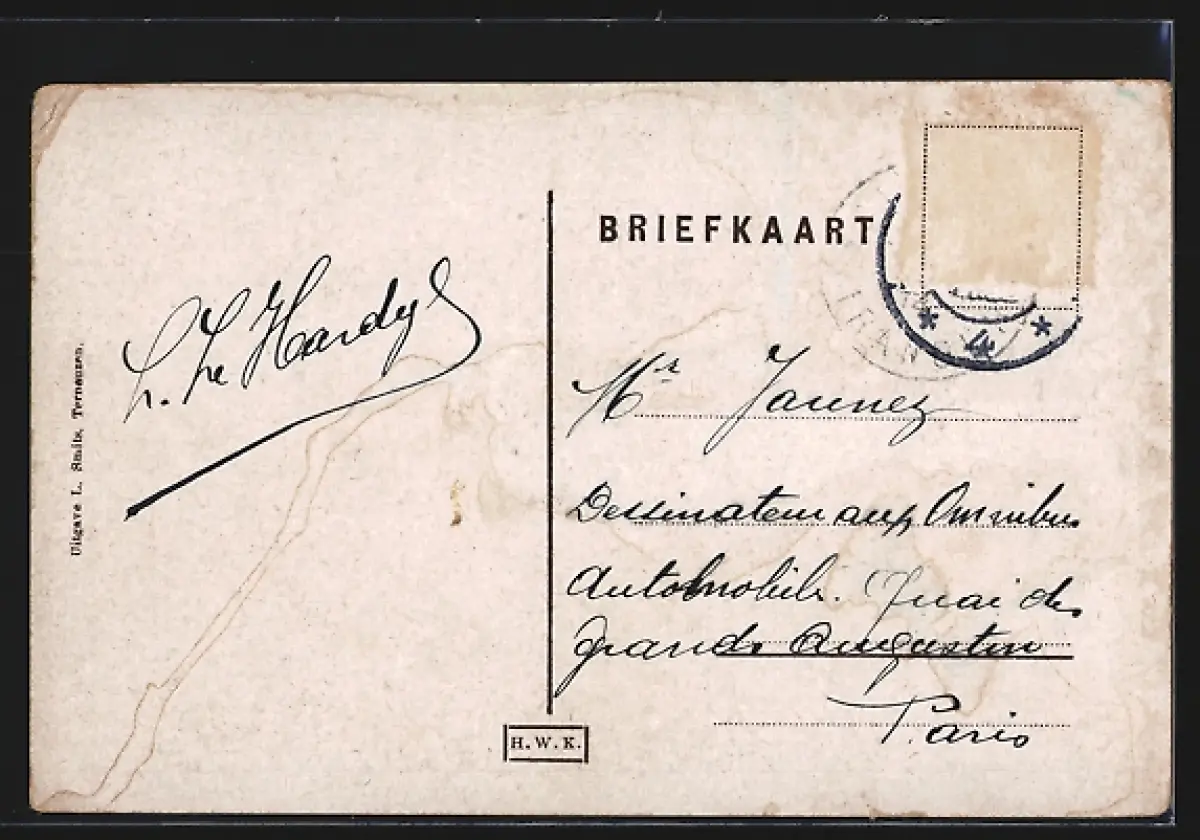 BRIEFKAART
L. Le Hardy
Mr Jaunez
Dessinateur aux Omnibus
Automobile. Quai des
grands Augustin
Paris
Uitgave L. Smits, Terneuzen.
H. W. K.
4